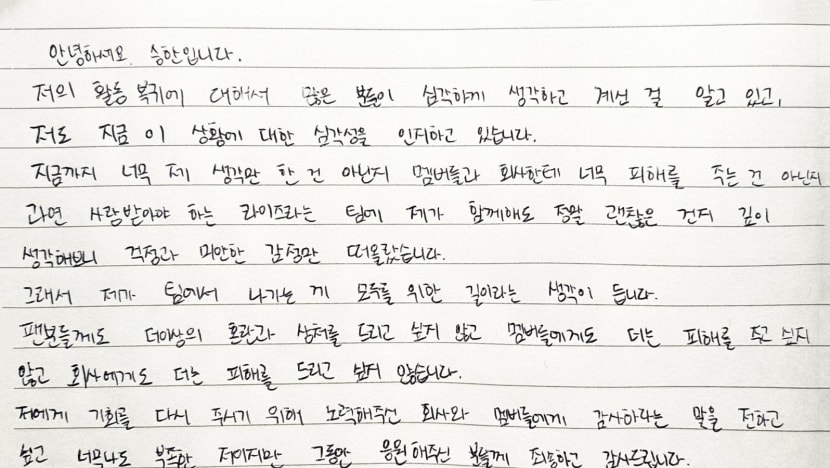 안녕하세요. 승한입니다.
저의 활동 복귀에 대해서 많은 분들이 심각하게 생각하고 계신 걸 알고 있고,
저도 지금 이 상황에 대한 심각성을 인지하고 있습니다.
지금까지 너무 제 생각만 한 건 아닌지 멤버들과 회사한테 너무 피해를 주는 건 아닌지
과연 사랑받아야 하는 라이즈라는 팀에 제가 함께해도 정말 괜찮은 건지 깊이
생각해보니 걱정과 미안한 감정만 떠올랐습니다.
그래서 제가 팀에서 나가는 게 모두를 위한 길이라는 생각이 듭니다.
팬분들께도 더이상의 혼란과 상처를 드리고 싶지 않고 멤버들에게도 더는 피해를 주고 싶지
않고 회사에게도 더는 피해를 드리고 싶지 않습니다.
저에게 기회를 다시 주시기 위해 노력해주신 회사와 멤버들에게 감사하다는 말을 전하고
싶고 너무나도 부족한 저이지만 그동안 응원해주신 분들께 죄송하고 감사드립니다.